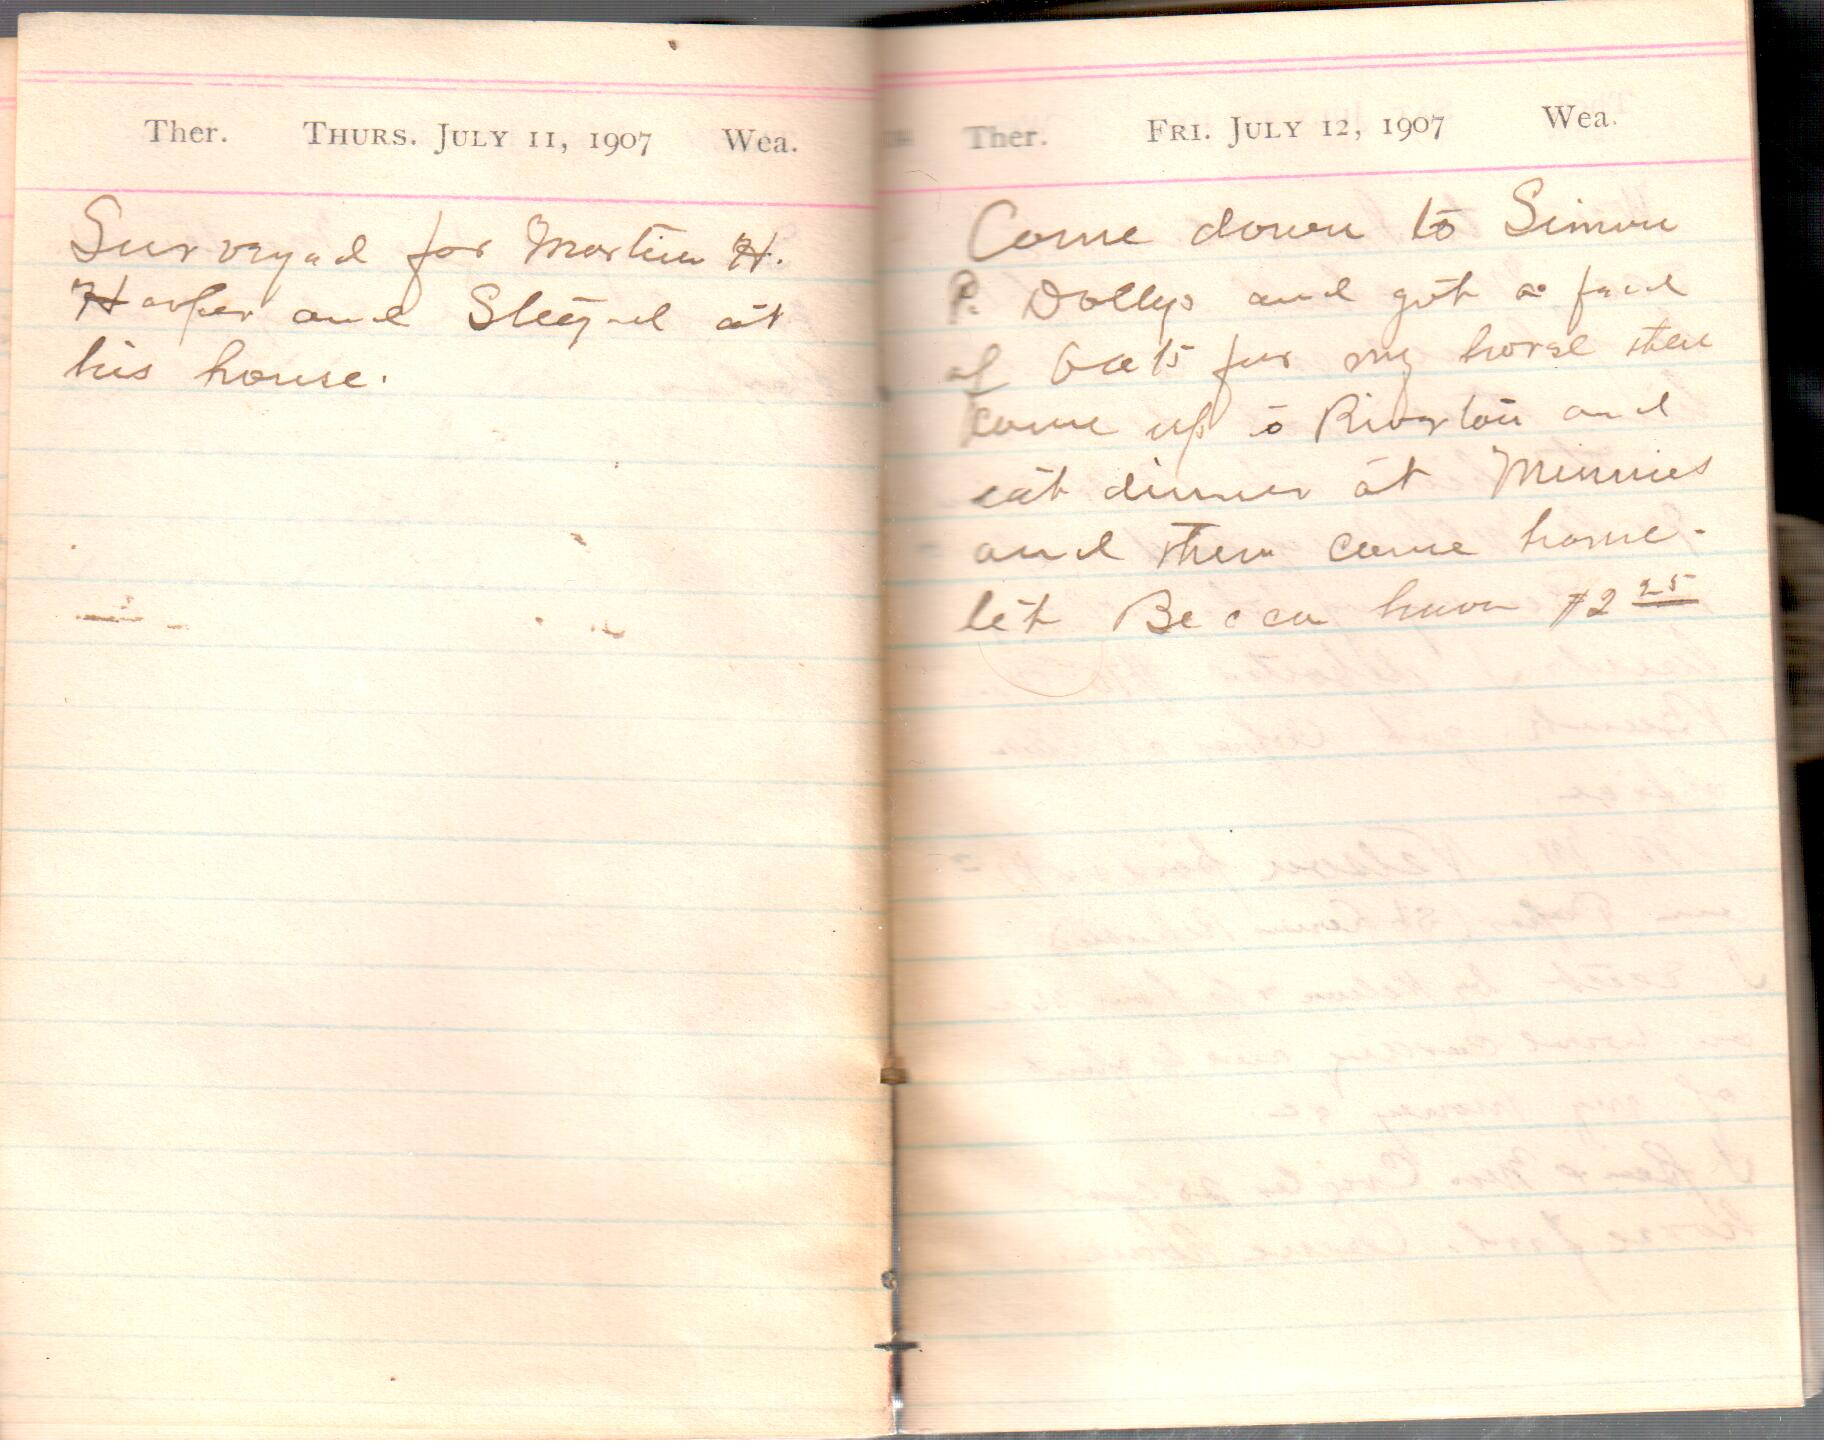 Ther. THURS. JULY 11, 1907 Wea.
Surveyed for Martin H.
Harper and Steyed at
his house.
Ther. FRI. JULY 12, 1907 Wea.
Come down to Simon
P. Dollys and got a feed
of Oats for my horse then
come up to Riverton and
eat dinner at Minnies
and then come home.
let Becca have $2 25